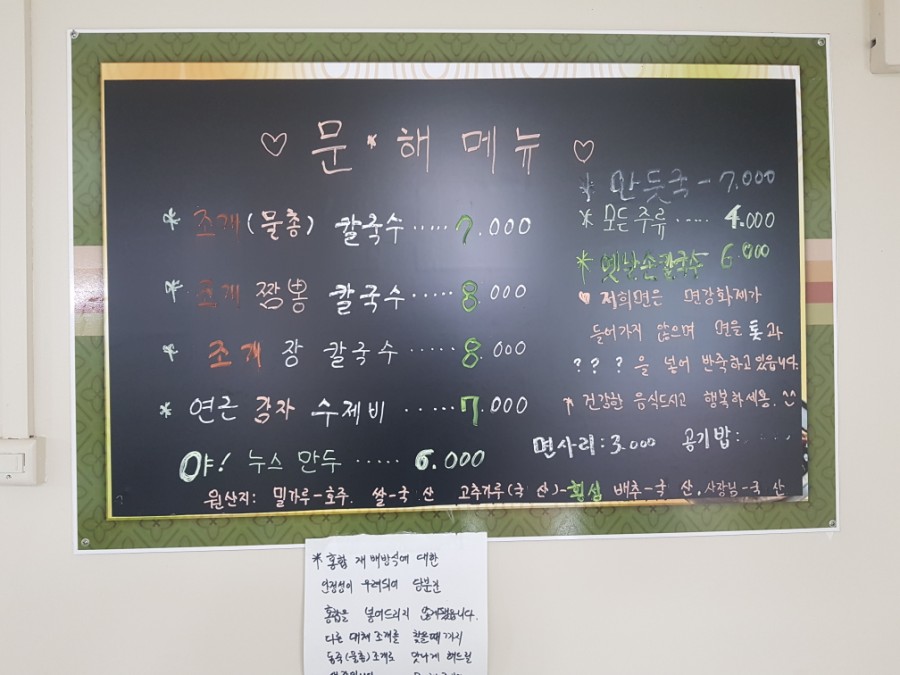 ♡ 문 * 해 메뉴 ♡
* 조개(물총) 칼국수 ····· 7.000
* 조개 짬뽕 칼국수 ······ 8.000
* 조개 장 칼국수 ······ 8.000
* 연근 감자 수제비 ······ 7.000
야! 누스 만두 ····· 6.000
* 만둣국 - 7.000
* 모든 주류 ····· 4.000
* 옛날손칼국수 6.000
♥ 저희면은 면강화제가
들어가지 않으며 면을 톳과
? ? ? 을 넣어 반죽하고 있습니다.
* 건강한 음식드시고 행복하세용. ^^
면사리 : 3.000 공기밥 : ·····
원산지: 밀가루-호주. 쌀-국 산 고추가루(국 산)-횡성 배추-국 산, 사장님-국 산
* 홍합 재배방식에 대한
안정성이 우려되어 당분간
홍합을 넣어드리지 않게됐습니다.
다른 대체 조개를 찾을때 까지
동죽(물총)조개로 맛나게 해드릴